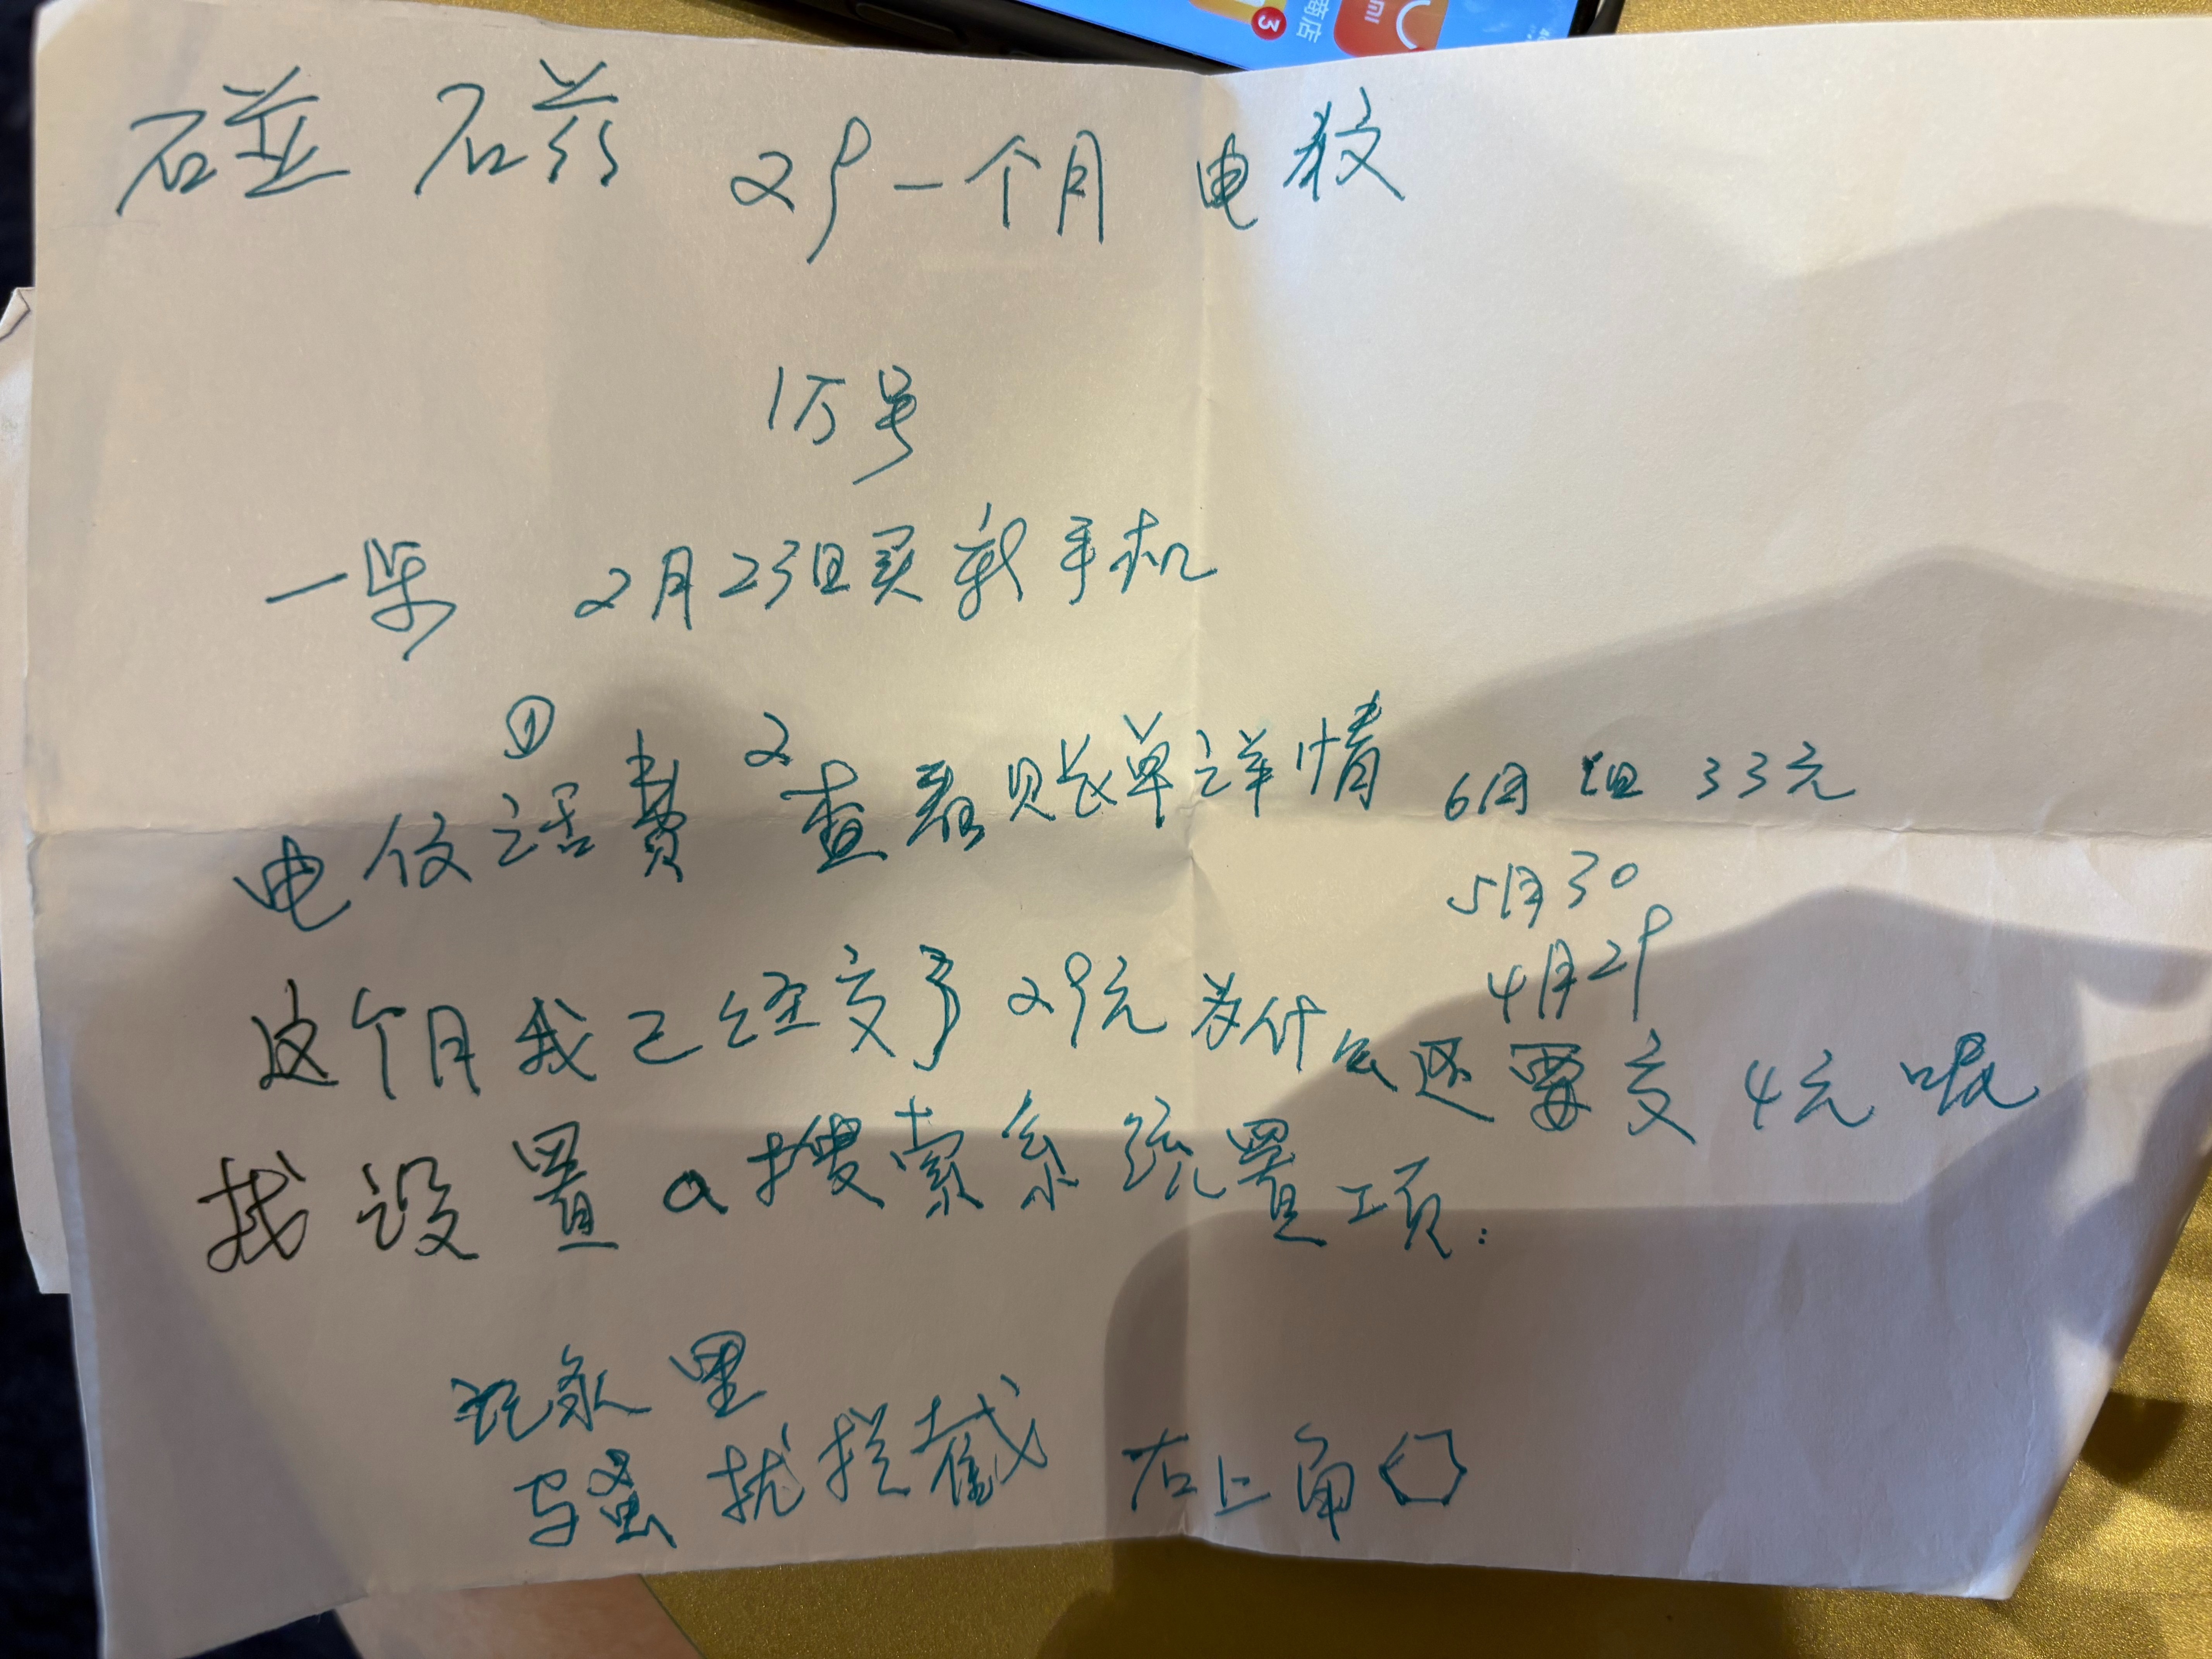 商店
3
mi
碰 磁 29一个月 电教
1万号
一乐 2月23日买新手机
① 2
电仅话费 查看账单详情 6月 1日 33元
5月30
4月29
这个月我已经交了29元为什么还要交4元呢
找设置 搜索系统置项:
记录里
骚扰拦截 右上角